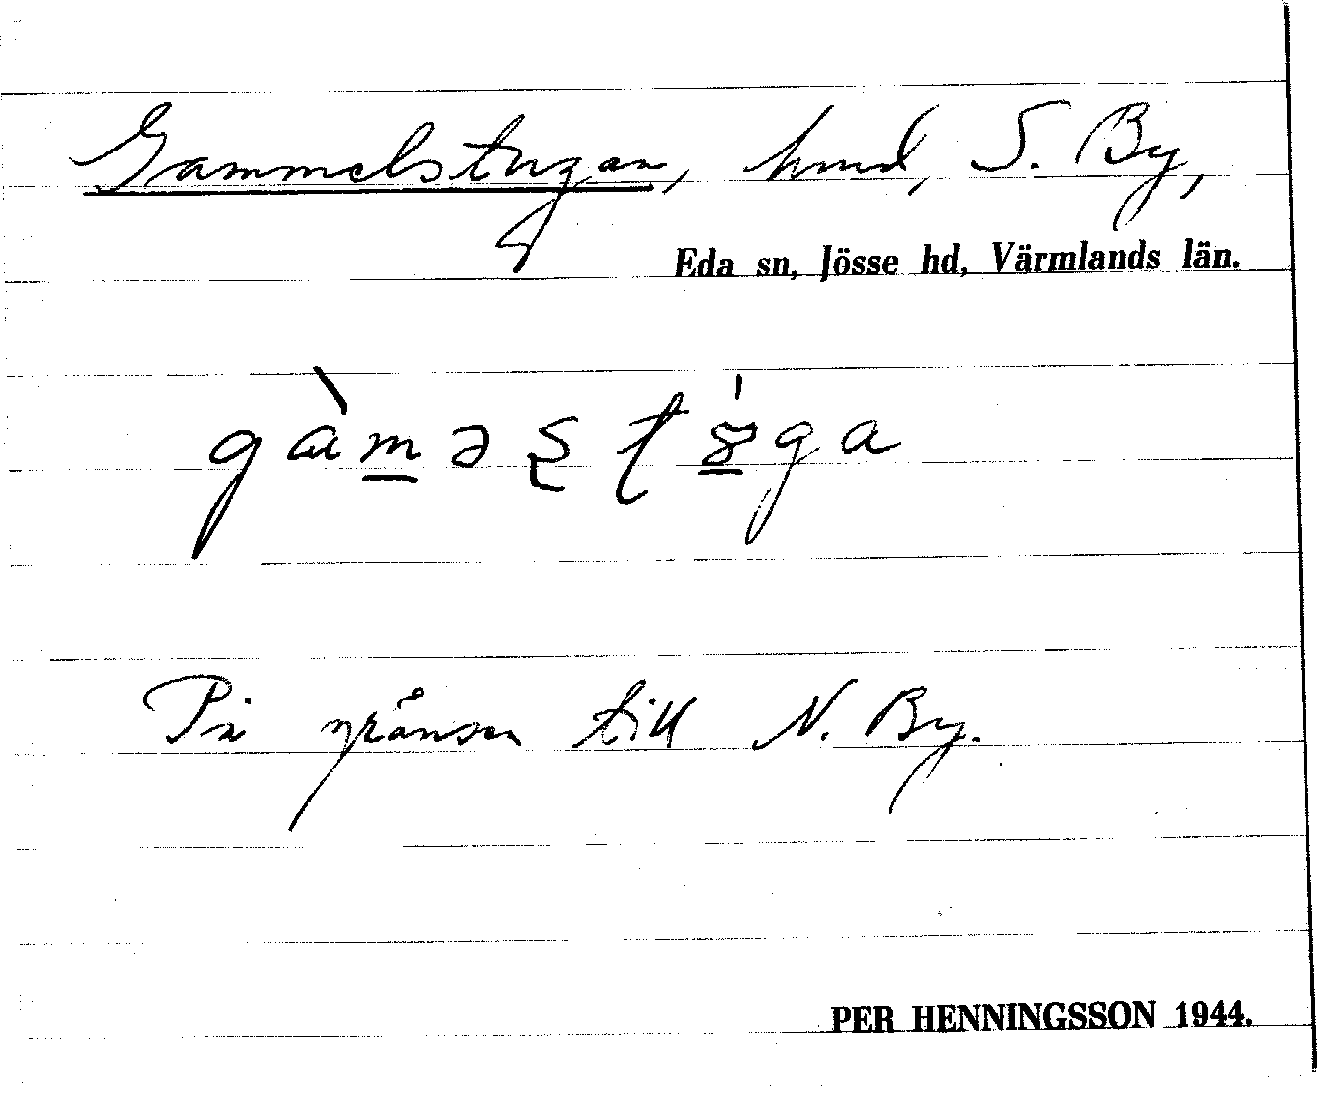 Gammelstugan, hmd, S. By,
Eda sn, Jösse hd, Värmlands län.
På gränsen till N. By.
PER HENNINGSSON 1944.